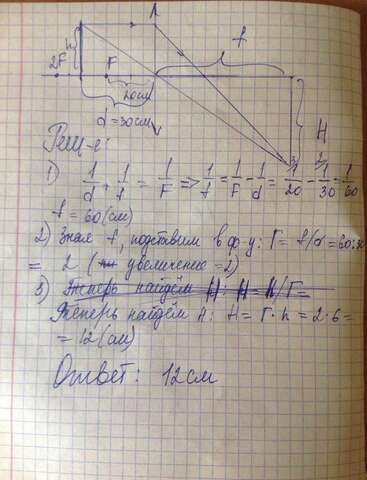 Л
f
h
2F F
20см
d = 30см
H
Реш-е:
1) 1/d + 1/f = 1/F => 1/f = 1/F - 1/d = 1/20 - 1/30 = 1/60
f = 60 (см)
2) Зная f, подставим в ф-у: Г = f/d = 60:30
= 2 ( увеличение = 2)
3) Теперь найдём H: H = h/Г =
Теперь найдём H: H = Г · h = 2 · 6 =
= 12 (см)
Ответ: 12 см